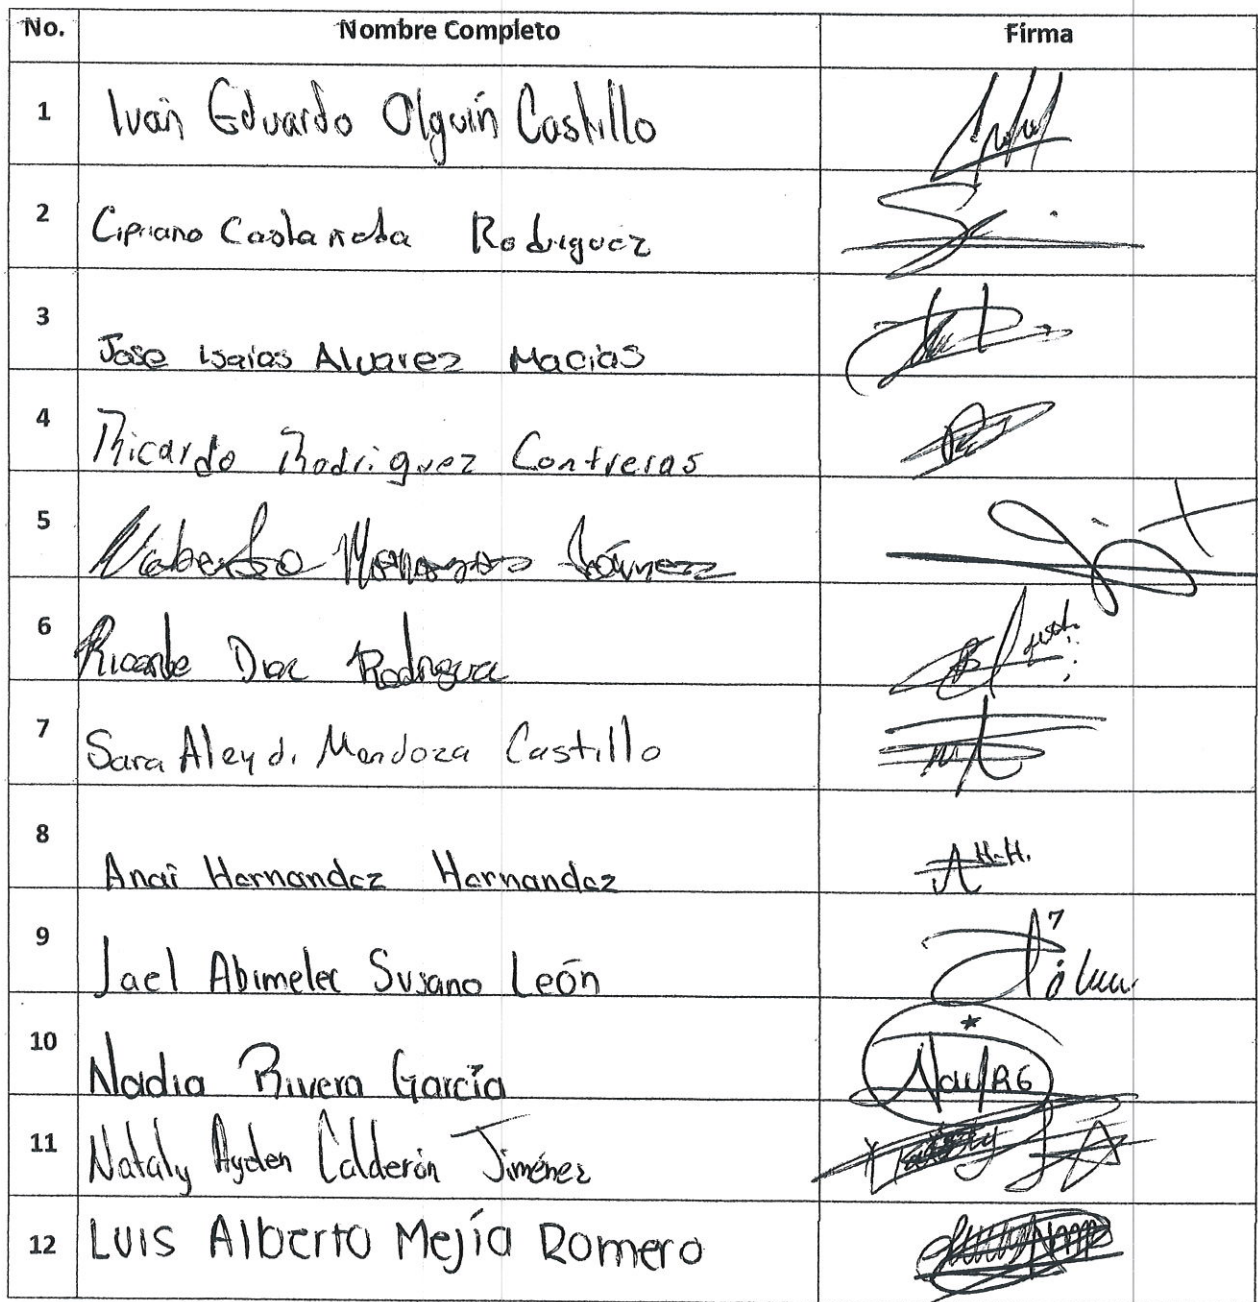 No. Nombre Completo Firma
1 Iván Eduardo Olguín Castillo
2 Cipriano Castañeda Rodriguez
3 Jose Isaias Alvarez Macias
4 Ricardo Rodriguez Contreras
5
6 Ricardo Diaz Rodriguez
7 Sara Aleydi Mendoza Castillo
8 Anaí Hernandez Hernandez A H.H.
9 Jael Abimelec Susano León
10 Nadia Rivera García
11 Nataly Ayden Calderón Jiménez
12 Luis Alberto Mejía Romero